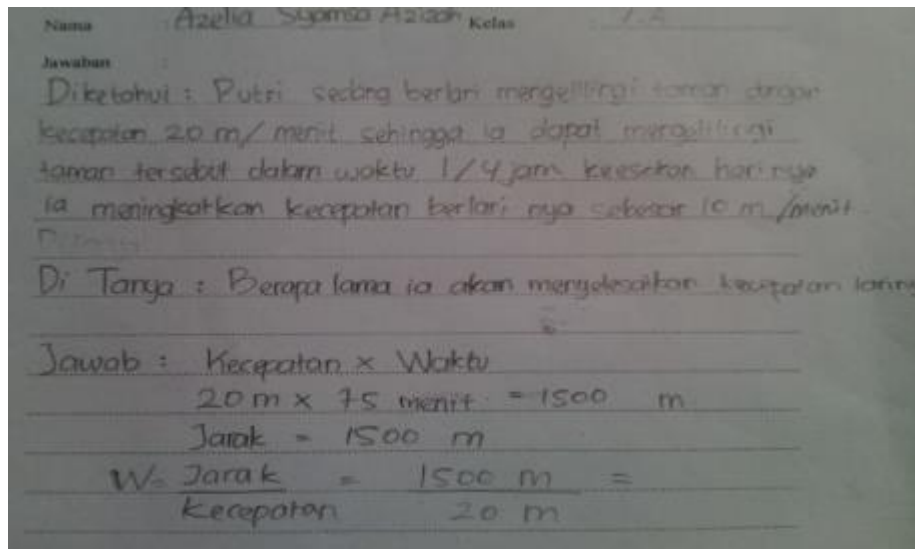 Nama Azelia Syamsa Azizah Kelas
Jawaban :
Diketahui : Putri sedang berlari mengelilingi taman dengan
kecepatan 20 m/menit sehingga ia dapat mengelilingi
taman tersebut dalam waktu 1/4 jam keesokan harinya
ia meningkatkan kecepatan berlari nya sebesar 10 m/menit
Di Tanya : Berapa lama ia akan menyelesaikan kecepatan larinya
Jawab : Kecepatan x Waktu
20 m x 75 menit = 1500 m
Jarak = 1500 m
W = Jarak = 1500 m =
Kecepatan 20 m